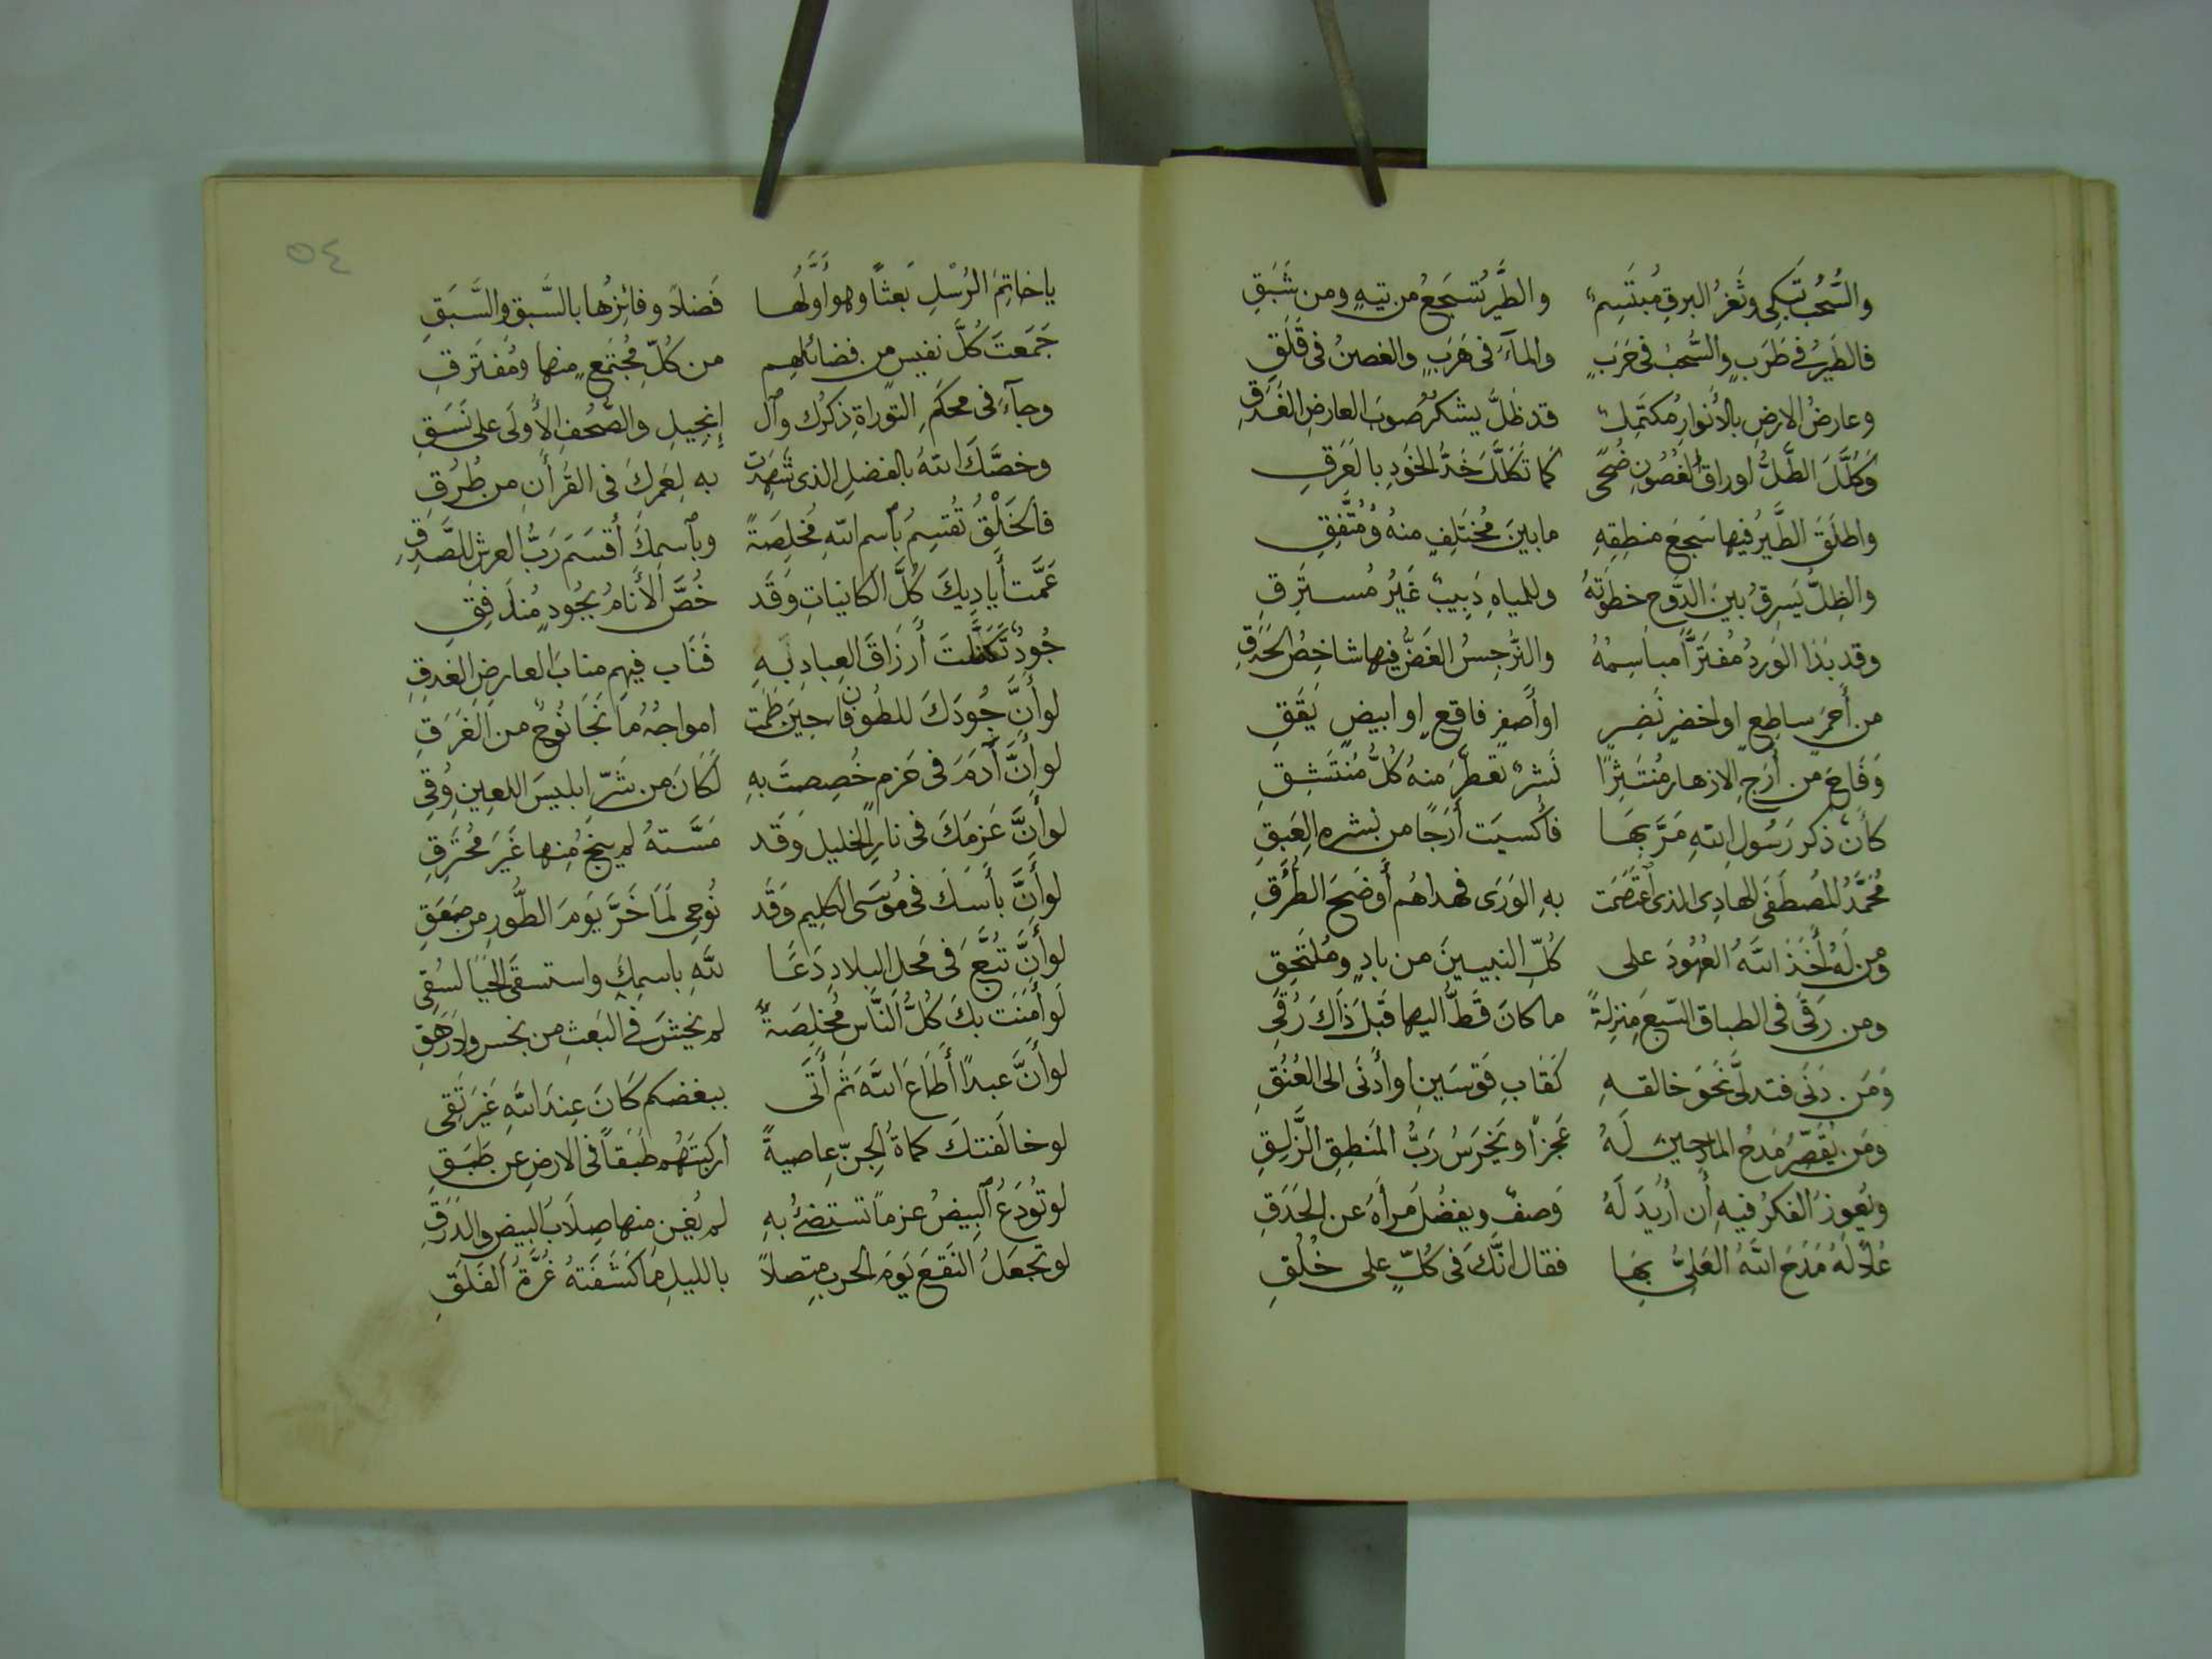 والسُّحُبُ تَبكِى وثَغرُ البرقِ مُبتَسِمٌ والطَّيرُ تَسجَعُ من تيهٍ ومن شَبَقِ
فالطَيرُ فى طَرَبٍ والسُّحبُ فى حَرَبٍ والمآءُ فى هَرَبٍ والغصنُ فى قَلَقِ
وعارضُ الارضِ بالأَنوارِ مُكتَمِلٌ قد ظلَّ يشكرُ صوبَ العارضِ الغَدَقِ
وَكَلَّلَ الطَّلُّ اوراقَ الغُصُونِ ضُحًى كما تَكَلَّلَ خَدُّ الخَودِ بالعَرَقِ
واطلَقَ الطَّيرُ فيها سَجعَ منطِقِهِ مابينَ مُختَلِفٍ منهُ ومُتَّفِقِ
والظِلُّ يَسرِقُ بينَ الدَّوحِ خطوَتَهُ وللمياهِ دَبِيبٌ غَيرُ مُسترِقِ
وقد بَدَا الوَردُ مُفتَرًّا مباسِمُهُ والنَّرجِسُ الغَضُّ فيها شاخِصُ الحَدَقِ
من أَحمَرٍ ساطعٍ او اخضرٍ نَضِرٍ او أَصفرٍ فاقعٍ او ابيضٍ يَقَقِ
وَفَاحَ من أَرَجِ الازهار مُنتَشِرًا نَشرٌ تَعطَّرَ منهُ كُلُّ مُنتَشِقِ
كأنَّ ذكر رَسُولِ اللهِ مَرَّ بِهَا فأُكسيَت أَرَجًا من نشره العَبِقِ
مُحَمَّدُ المُصطَفَى الهادِى الذى ٱعتَصَمَت بهِ الوَرَى فهداهُم أَوضَحَ الطُّرُقِ
ومن لَهُ أَخَذَ اللهُ العُهُودَ على كُلِّ النبيينَ من بادٍ ومُلتَحِقِ
ومن رَقَى فى الطباق السّبعِ منزِلةً ماكانَ قَطُّ اليها قَبلَ ذَاكَ رُقَى
وَمَن دَنَى فتدلَّى نَحوَ خالقهِ كَقابِ قَوسَينِ او أَدنَى الى العُنُقِ
ومَن يُقَصِّرُ مَدحُ المادحِينَ لَهُ عَجزًا ويَخرَسُ رَبُّ المَنطِقِ الزَّلِقِ
ويُعوِزُ الفكرُ فيهِ أن أُرِيدَ لَهُ وَصفٌ ويفضُلُ مَرأَهُ عن الحَدَقِ
عُلاً لَهُ مَدَحَ اللهُ العَلِىُّ بِهَا فقال انَّكَ فى كُلٍّ على خُلُقِ
٥٤
ياخاتِمَ الرُسْلِ بَعثًا وهو أَوَّلُها فَضلاً وفائِزُها بالسَّبقِ والسَّبَقِ
جَمَعتَ كُلَّ نفيسٍ من فضائلهِم من كُلِّ مُجتَمعٍ منها ومُفتَرِقِ
وجآءَ فى محكَمِ التوراةِ ذكرُك وٱل إنجيلِ والصُّحُفِ الأُولَى على نَسَقِ
وخصَّكَ اللهُ بالفضلِ الذى شَهِدَت به لعَمرُكَ فى القُرأَنِ من طُرُقِ
فالخَلْقُ تُقسِمُ بٱسم اللهِ مُخلِصَةً وبٱسمِكَ أَقسَمَ رَبُّ العرشِ للصَّدِقِ
عَمَّت أَيادِيكَ كُلَّ الكائناتِ وَقَد خُصَّ الأَنَامُ بجُودٍ مُندَفِقِ
جُودٌ تَكَفَّلتَ أَرزَاقَ العِبادِ بهِ فَنَاب فيهِم منابَ العارِضِ الغدِقِ
لو أَنَّ جُودَكَ للطُوفَانِ حِينَ طَمَت امواجُهُ مَا نَجَا نُوحٌ من الغَرَقِ
لو أَنَّ آدَمَ فى حَزمٍ خُصِصتَ بهِ لَكَانَ من شَرّ ابليسَ اللعِينِ وُقِى
لو أَنَّ عَزمَكَ فى نارِ الخليل وَقَد مَسَّتهُ لم ينجُ مِنها غَيرَ مُحتَرِقِ
لو أَنَّ بأسَكَ فى مُوسَى الكلِيم وَقَد نُوجِى لَمَا خَرَّ يَومَ الطُّورِ من صَعَقِ
لو أَنَّ تُبَّعَ فى مَحلِ البلادِ دَعَا للهِ باسمِكَ واستسقَى الحَيَا لسُقِى
لو أَمنَت بكَ كُلُّ النَّاس مُخلِصَةً لم يخشَ فى البَعثِ من بخسٍ ولا رَهَقِ
لو أَنَّ عبدًا أَطَاعَ اللهَ ثم أَتَى ببغضكم كَانَ عِندَ اللهِ غَيرَ تَقِى
لو خالَفتكَ كماةُ الجِنّ عاصيةً اركبتَهُم طَبَقًا فى الارضِ عن طَبَقِ
لو تُودَعُ ٱلبِيضُ عزمًا تستضئُ بهِ لم يُغنِ منها صِلَابُ البيضِ والدَّرَقِ
لو تجعَلُ النَقعَ يَومَ الحربِ متصِلاً بالليلِ مَا كَشَفَتهُ غُرَّةُ الفَلَقِ